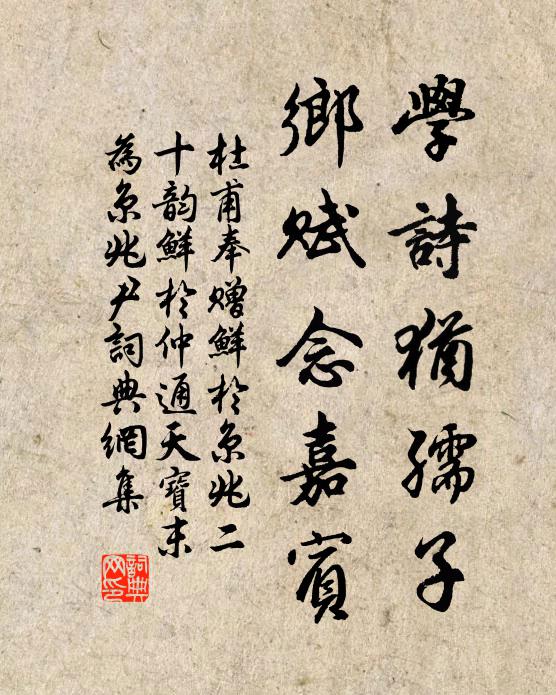 學詩猶孺子
鄉賦念嘉賓
杜甫奉贈鮮於京兆二
十韵鮮於仲通天寶末
為京兆尹詞典網集
詞典
网印